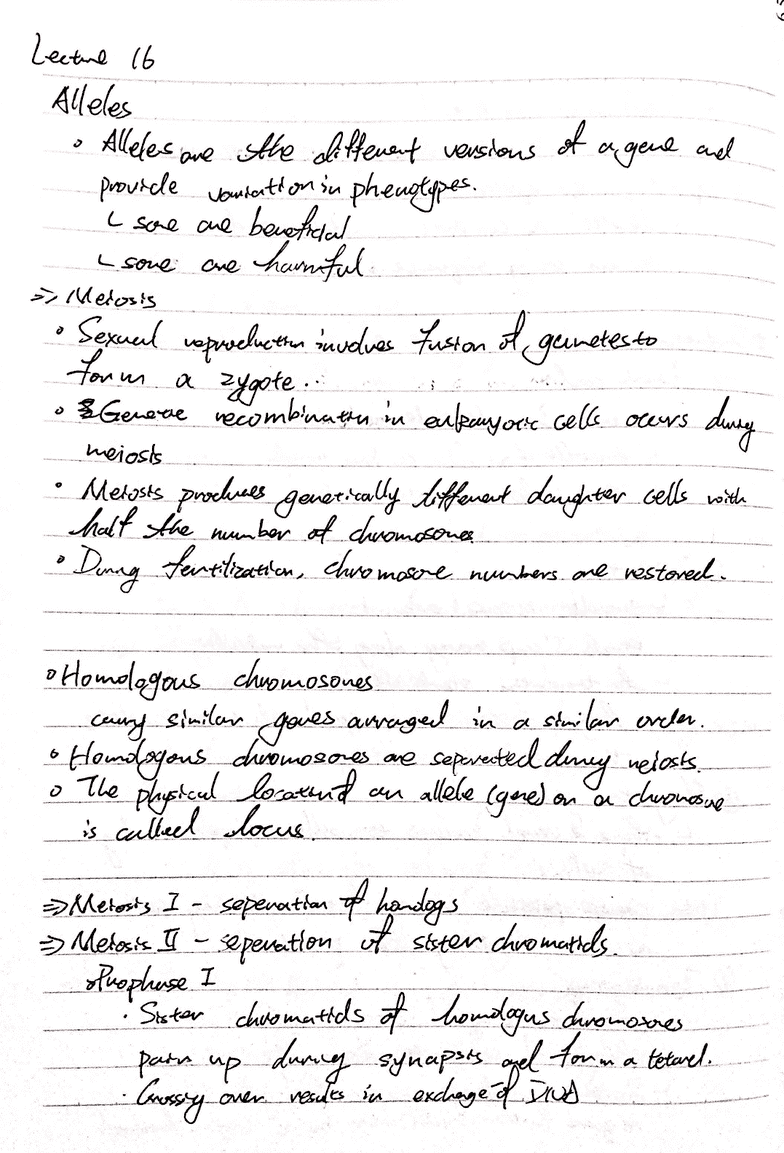 Lecture 16
Alleles
◦ Alleles are the different versions of a gene and
provide variation in phenotypes.
↳ some are beneficial
↳ some are harmful
⇒ Meiosis
◦ Sexual reproduction involves fusion of gametes to
form a zygote.
◦ Genetic recombination in eukaryotic cells occurs during
meiosis
◦ Meiosis produces genetically different daughter cells with
half the number of chromosomes
◦ During fertilization, chromosome numbers are restored.
◦ Homologous chromosomes
carry similar genes arranged in a similar order.
◦ Homologous chromosomes are seperated during meiosis.
◦ The physical location of an allele (gene) on a chromosome
is called locus.
⇒ Meiosis I - seperation of homologs
⇒ Meiosis II - seperation of sister chromatids.
◦ Prophase I
· Sister chromatids of homologus chromosomes
pair up during synapsis and form a tetrad.
· Crossing over results in exchange of DNA